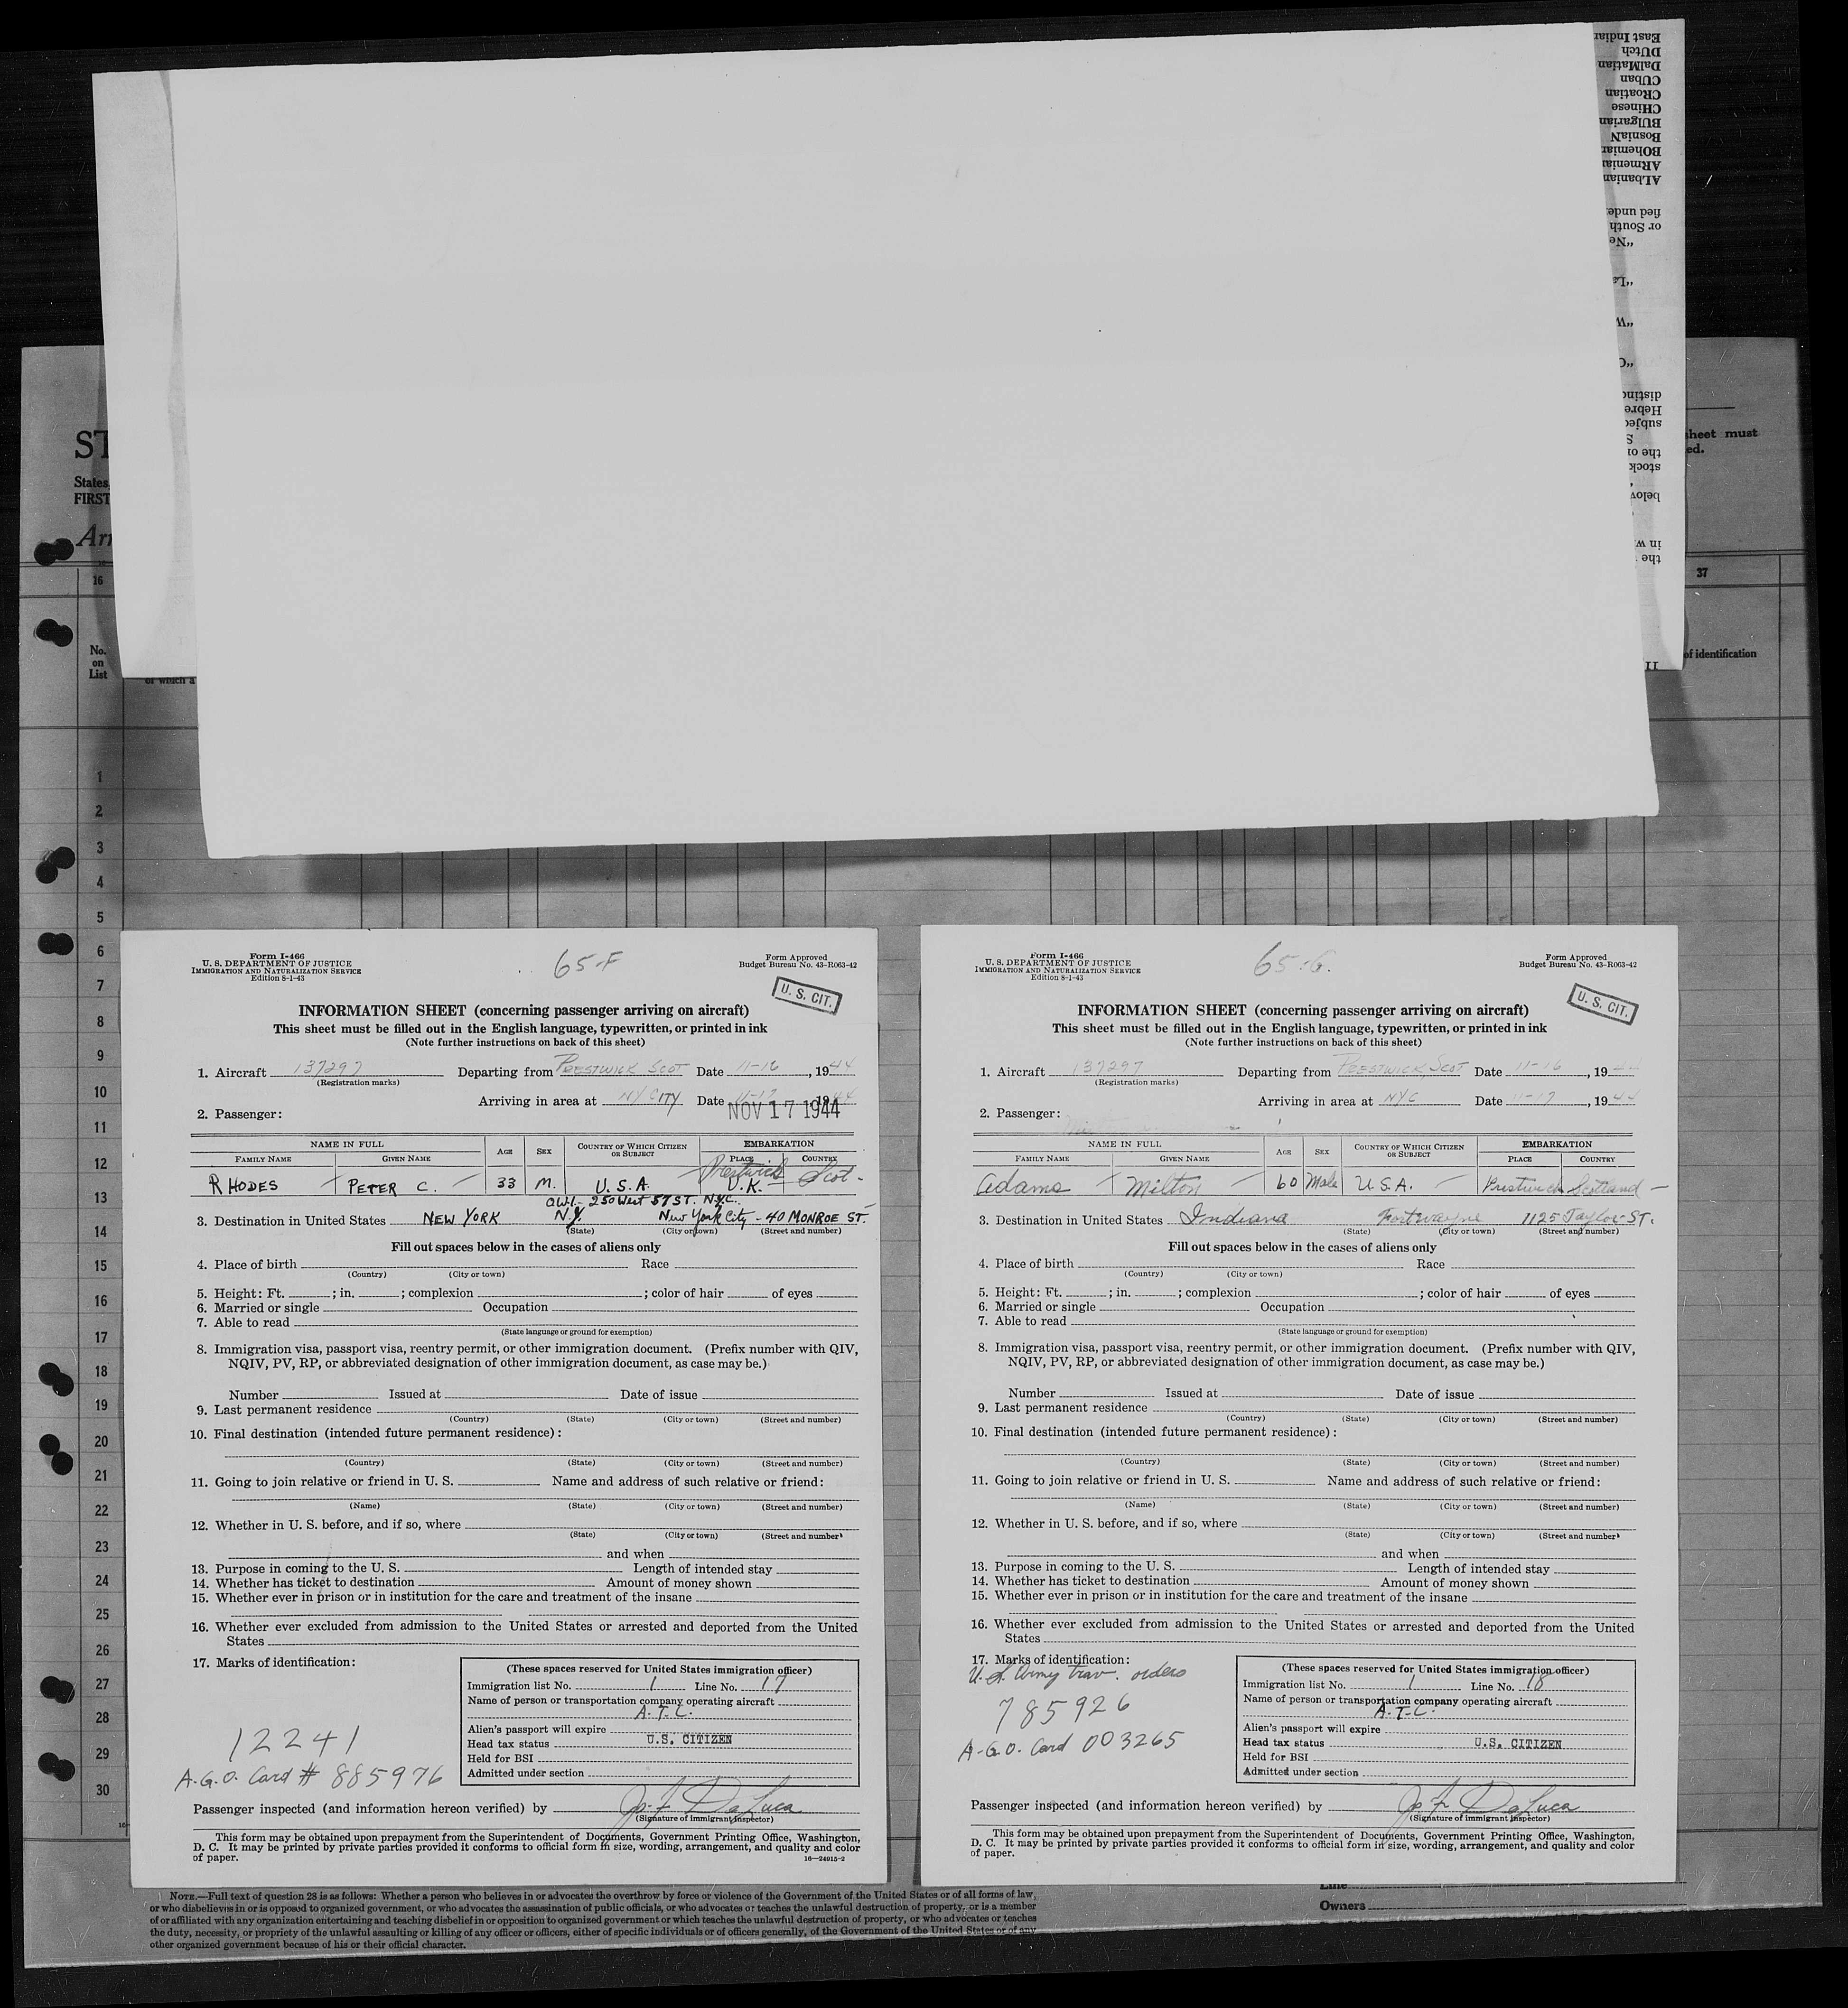 East Indian
DUtch
DalMatian
CUban
CRoatian
CHinese
BUlgarian
BosniaN
BOhemian
ARmenian
ALbanian
fied under
or South
"Ne
"La
"W
"C
distinc
Hebre
subjec
S
the or
stock
below
in w
the
ST
States,
FIRST
Arr
sheet must
ed.
16
37
No.
on
List
of which a
of identification
11
1
2
3
4
5
6
7
8
9
10
11
12
13
14
15
16
17
18
19
20
21
22
23
24
25
26
27
28
29
30
Form I-466
U. S. DEPARTMENT OF JUSTICE
IMMIGRATION AND NATURALIZATION SERVICE
Edition 8-1-43
65-F
Form Approved
Budget Bureau No. 43-R063-42
U. S. CIT.
INFORMATION SHEET (concerning passenger arriving on aircraft)
This sheet must be filled out in the English language, typewritten, or printed in ink
(Note further instructions on back of this sheet)
1. Aircraft 137297 Departing from PRESTWICK SCOT Date 11-16, 1944
(Registration marks)
Arriving in area at NY CITY Date 11-17, 1944
NOV 17 1944
2. Passenger:
NAME IN FULL AGE SEX COUNTRY OF WHICH CITIZEN OR SUBJECT EMBARKATION
FAMILY NAME GIVEN NAME PLACE COUNTRY
Prestwick Scot-
RHODES PETER C. 33 M. U.S.A. U.K.
OWI - 250 West 57 ST. N.Y.C.
3. Destination in United States NEW YORK N.Y. New York City - 40 MONROE ST.
(State) (City or town) (Street and number)
Fill out spaces below in the cases of aliens only
4. Place of birth Race
(Country) (City or town)
5. Height: Ft. ; in. ; complexion ; color of hair of eyes
6. Married or single Occupation
7. Able to read
(State language or ground for exemption)
8. Immigration visa, passport visa, reentry permit, or other immigration document. (Prefix number with QIV,
NQIV, PV, RP, or abbreviated designation of other immigration document, as case may be.)
Number Issued at Date of issue
9. Last permanent residence
(Country) (State) (City or town) (Street and number)
10. Final destination (intended future permanent residence):
(Country) (State) (City or town) (Street and number)
11. Going to join relative or friend in U. S. Name and address of such relative or friend:
(Name) (State) (City or town) (Street and number)
12. Whether in U. S. before, and if so, where
(State) (City or town) (Street and number)
and when
13. Purpose in coming to the U. S. Length of intended stay
14. Whether has ticket to destination Amount of money shown
15. Whether ever in prison or in institution for the care and treatment of the insane
16. Whether ever excluded from admission to the United States or arrested and deported from the United
States
17. Marks of identification:
12241
A.G.O. Card # 885976
(These spaces reserved for United States immigration officer)
Immigration list No. 1 Line No. 17
Name of person or transportation company operating aircraft
A.T.C.
Alien's passport will expire
Head tax status U.S. CITIZEN
Held for BSI
Admitted under section
Passenger inspected (and information hereon verified) by Jo. F. DeLuca
(Signature of Immigrant Inspector)
This form may be obtained upon prepayment from the Superintendent of Documents, Government Printing Office, Washington,
D. C. It may be printed by private parties provided it conforms to official form in size, wording, arrangement, and quality and color
of paper.
16—24915-2
Form I-466
U. S. DEPARTMENT OF JUSTICE
IMMIGRATION AND NATURALIZATION SERVICE
Edition 8-1-43
65-G.
Form Approved
Budget Bureau No. 43-R063-42
U. S. CIT.
INFORMATION SHEET (concerning passenger arriving on aircraft)
This sheet must be filled out in the English language, typewritten, or printed in ink
(Note further instructions on back of this sheet)
1. Aircraft 137297 Departing from PRESTWICK, SCOT Date 11-16, 1944
(Registration marks)
Arriving in area at NYC Date 11-17, 1944
2. Passenger:
NAME IN FULL AGE SEX COUNTRY OF WHICH CITIZEN OR SUBJECT EMBARKATION
FAMILY NAME GIVEN NAME PLACE COUNTRY
Adams Milton 60 Male U.S.A. Prestwick Scotland
3. Destination in United States Indiana Fort Wayne 1125 Taylor ST.
(State) (City or town) (Street and number)
Fill out spaces below in the cases of aliens only
4. Place of birth Race
(Country) (City or town)
5. Height: Ft. ; in. ; complexion ; color of hair of eyes
6. Married or single Occupation
7. Able to read
(State language or ground for exemption)
8. Immigration visa, passport visa, reentry permit, or other immigration document. (Prefix number with QIV,
NQIV, PV, RP, or abbreviated designation of other immigration document, as case may be.)
Number Issued at Date of issue
9. Last permanent residence
(Country) (State) (City or town) (Street and number)
10. Final destination (intended future permanent residence):
(Country) (State) (City or town) (Street and number)
11. Going to join relative or friend in U. S. Name and address of such relative or friend:
(Name) (State) (City or town) (Street and number)
12. Whether in U. S. before, and if so, where
(State) (City or town) (Street and number)
and when
13. Purpose in coming to the U. S. Length of intended stay
14. Whether has ticket to destination Amount of money shown
15. Whether ever in prison or in institution for the care and treatment of the insane
16. Whether ever excluded from admission to the United States or arrested and deported from the United
States
17. Marks of identification:
U.S. Army trav. orders
785926
A.G.O. Card 003265
(These spaces reserved for United States immigration officer)
Immigration list No. 1 Line No. 18
Name of person or transportation company operating aircraft
A.T.C.
Alien's passport will expire
Head tax status U.S. CITIZEN
Held for BSI
Admitted under section
Passenger inspected (and information hereon verified) by Jo. F. DeLuca
(Signature of Immigrant Inspector)
This form may be obtained upon prepayment from the Superintendent of Documents, Government Printing Office, Washington,
D. C. It may be printed by private parties provided it conforms to official form in size, wording, arrangement, and quality and color
of paper.
NOTE.—Full text of question 28 is as follows: Whether a person who believes in or advocates the overthrow by force or violence of the Government of the United States or of all forms of law,
or who disbelieves in or is opposed to organized government, or who advocates the assassination of public officials, or who advocates or teaches the unlawful destruction of property, or is a member
of or affiliated with any organization entertaining and teaching disbelief in or opposition to organized government or which teaches the unlawful destruction of property, or who advocates or teaches
the duty, necessity, or propriety of the unlawful assaulting or killing of any officer or officers, either of specific individuals or of officers generally, of the Government of the United States or of any
other organized government because of his or their official character.
Line
Owners